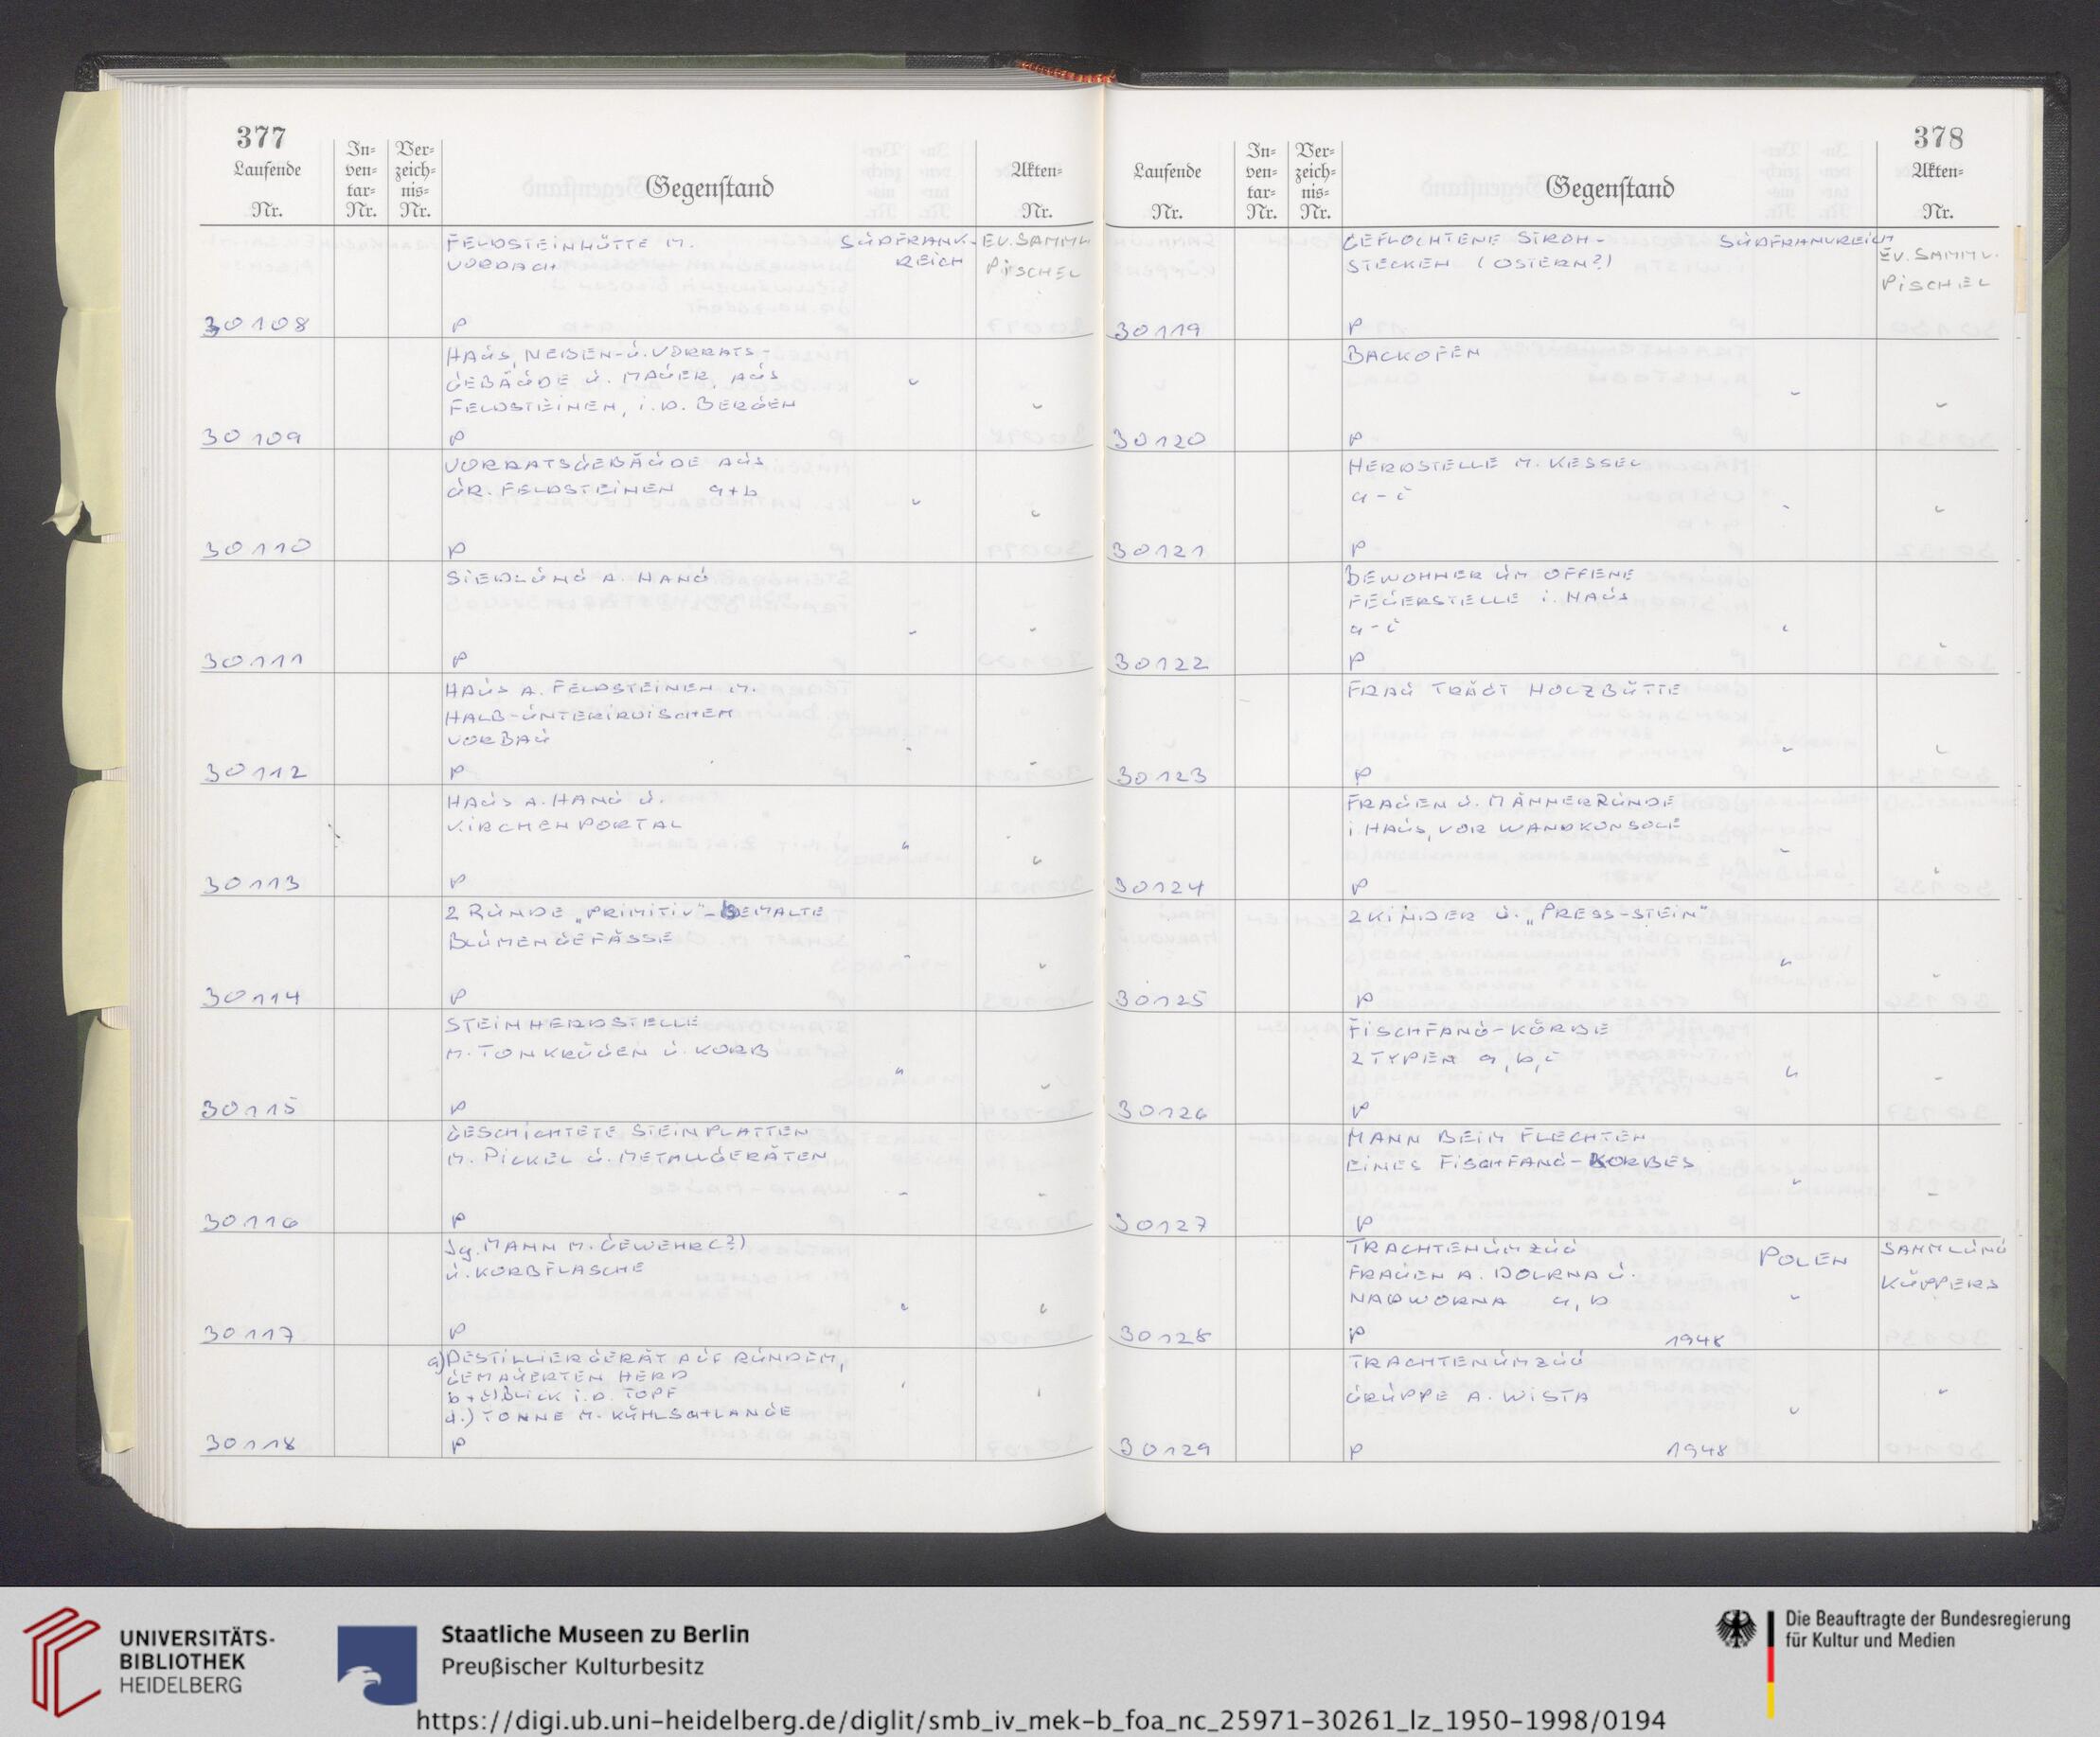 377
Laufende Nr.
In-
ven-
tar-
Nr.
Ver-
zeich-
nis-
Nr.
Gegenstand
Akten-
Nr.
FELDSTEINHÜTTE M. SÜDFRANK- EV. SAMML
VORDACH REICH PISCHEL
30108 P
HAUS, NEBEN- U. VORRATS-
GEBÄUDE U. MAUER, AUS "
FELDSTEINEN, I.D. BERGEN "
30109 P
VORRATSGEBÄUDE AUS
GR. FELDSTEINEN a+b " "
30110 P
SIEDLUNG A. HANG
" "
30111 P
HAUS A. FELDSTEINEN M.
HALB-UNTERIRDISCHEM
VORBAU " "
30112 P
HAUS A. HANG U.
KIRCHENPORTAL " "
30113 P
2 RUNDE „PRIMITIV"-BEMALTE
BLUMENGEFÄSSE " "
30114 P
STEINHERDSTELLE
M. TONKRÜGEN U. KORB " "
30115 P
GESCHICHTETE STEINPLATTEN
M. PICKEL U. METALLGERÄTEN
" "
30116 P
Jg. MANN M. GEWEHR (?)
U. KORBFLASCHE
" "
30117 P
a) DESTILLIERGERÄT AUF RUNDEM,
GEMAUERTEN HERD
b+c) BLICK I.D. TOPF " "
d.) TONNE M. KÜHLSCHLANGE
30118 P
378
Laufende Nr.
In-
ven-
tar-
Nr.
Ver-
zeich-
nis-
Nr.
Gegenstand
Akten-
Nr.
GEFLOCHTENE STROH- SÜDFRANKREICH EV. SAMML.
STECKEN (OSTERN?) PISCHEL
30119 P
BACKOFEN
" "
30120 P
HERDSTELLE M. KESSEL
a-c " "
30121 P
BEWOHNER UM OFFENE
FEUERSTELLE I. HAUS
a-c " "
30122 P
FRAU TRÄGT HOLZBÜTTE
" "
30123 P
FRAUEN U. MÄNNERRUNDE
I HAUS, VOR WANDKONSOLE
" "
30124 P
2 KINDER U. „PRESS-STEIN"
" "
30125 P
FISCHFANG-KÖRBE
2 TYPEN a, b, c " "
30126 P
MANN BEIM FLECHTEN
EINES FISCHFANG-KORBES
" "
30127 P
TRACHTENUMZUG POLEN SAMMLUNG
FRAUEN A. DOLRNA U. KÜPPERS
NADWORNA a, b "
30128 P 1948
TRACHTENUMZUG
GRUPPE A. WISTA " "
30129 P 1948
UNIVERSITÄTS-
BIBLIOTHEK
HEIDELBERG
Staatliche Museen zu Berlin
Preußischer Kulturbesitz
Die Beauftragte der Bundesregierung
für Kultur und Medien
https://digi.ub.uni-heidelberg.de/diglit/smb_iv_mek-b_foa_nc_25971-30261_lz_1950-1998/0194